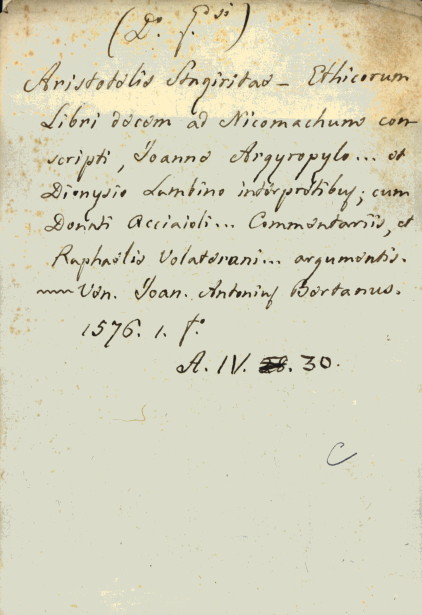 (Do. f.si)
Aristotelis Stagiritae — Ethicorum
Libri decem ad Nicomachum con
scripti, Joanne Argyropylo... et
Dionysio Lambino interpretibus; cum
Donati Acciaioli... Commentariis, et
Raphaëlis Volaterani... argumentis.
— Ven. Joan. Antonius Bertanus.
1576. 1. fo.
A. IV. 30.
C